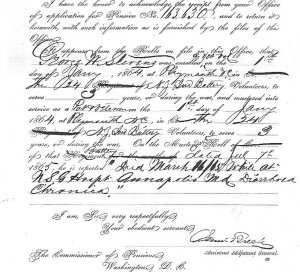 I have the honor to acknowledge the receipt from your Office
of application for Pension No. 163,630, and to return it
herewith, with such information as is furnished by the files of this
Office.
It appears from the Rolls on file in this Office, that
George W. Stevens was enrolled on the 1st
day of Jany, 1864, at Plymouth N.C. in
the 24 Ind Battery
N.Y. Volunteers, to serve
3 years, or during the war, and mustered into
service as a on the 1st day of Jany
1864, at Plymouth N.C., in the 24
N.Y. Ind Battery Volunteers, to serve 3
years, or during the war. On the Muster Roll of
that Battery dated July 7th
1865 is reported "Died March 16/65 while at
USG Hospt Annapolis Md Diarrhoea
Chronica."
I am, Sir, very respectfully,
Your obedient servant,
Assistant Adjutant General.
The Commissioner of Pensions,
Washington, D. C.